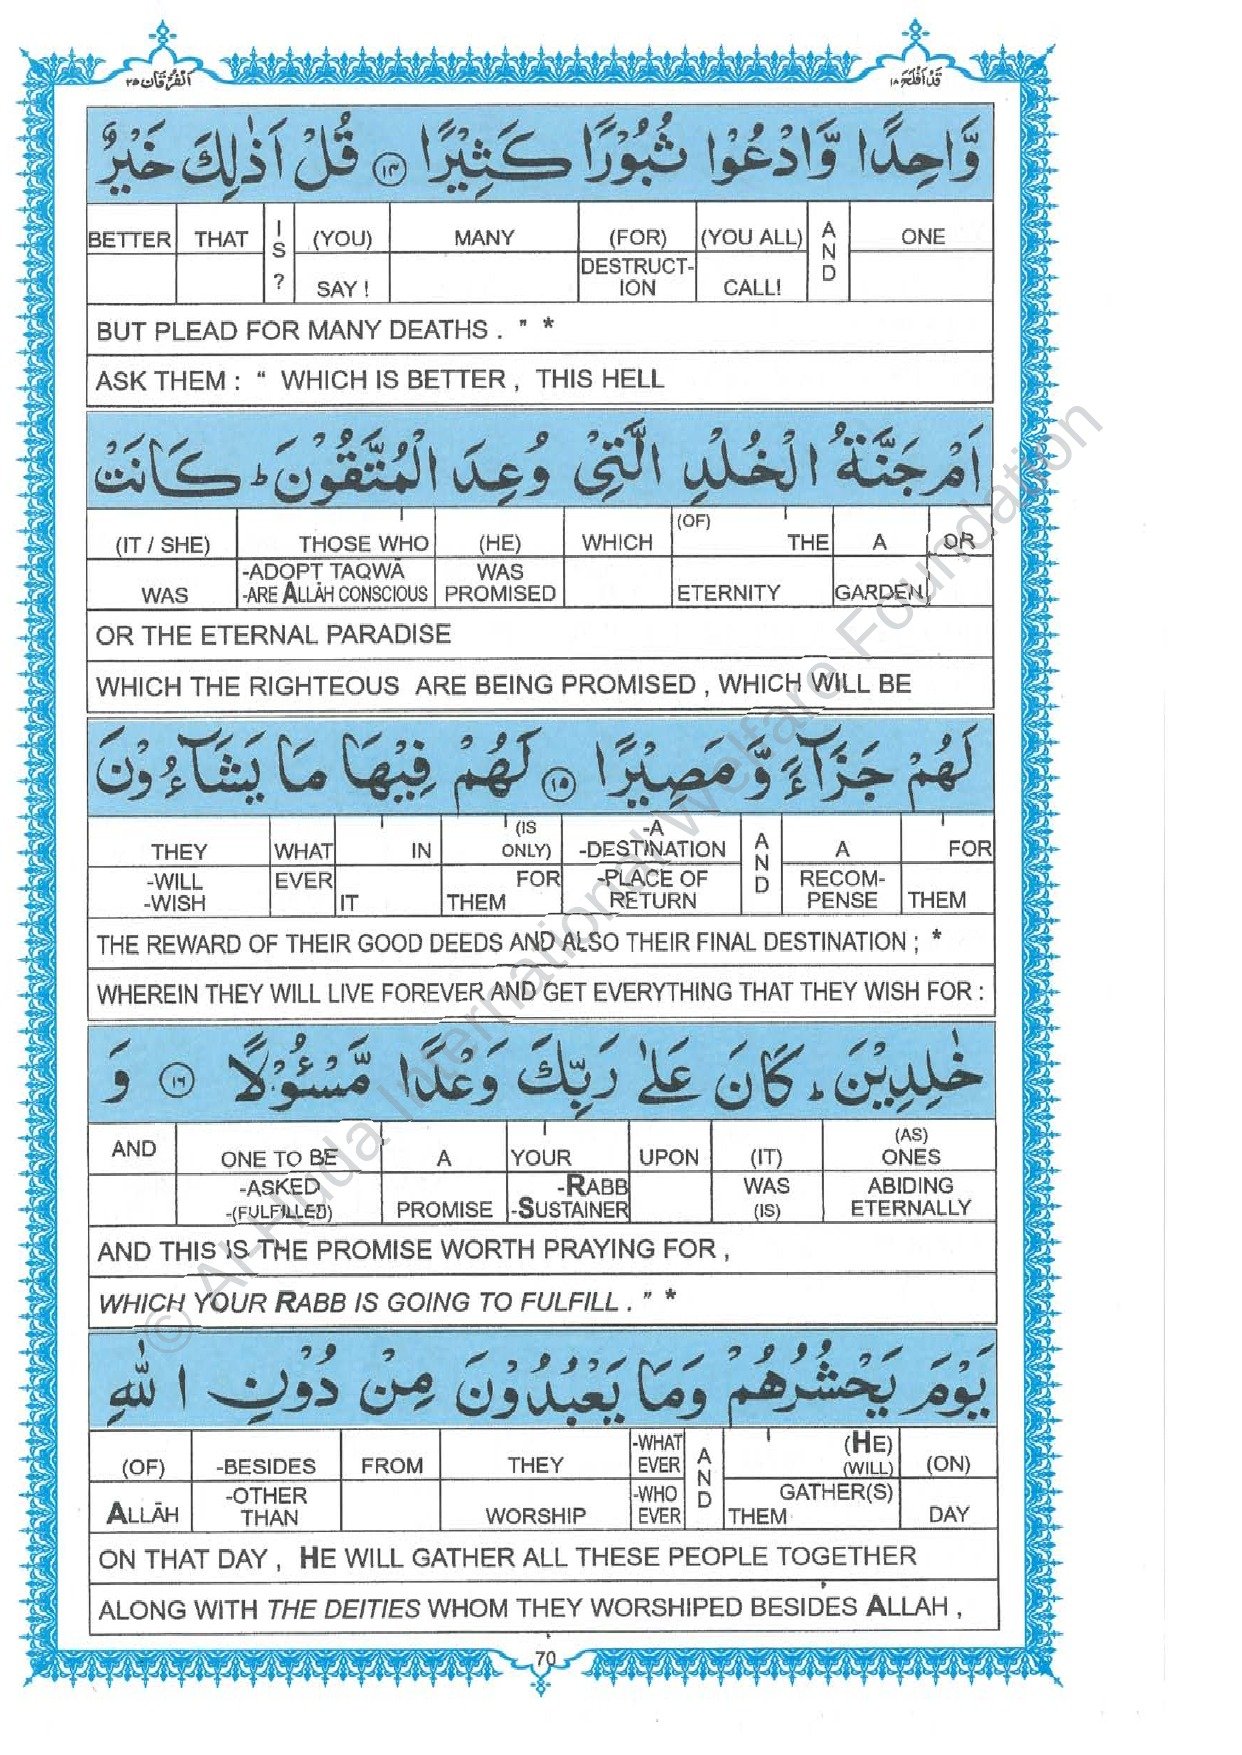 اَلْفُرْقَان ٢٥
قَدْ اَفْلَحَ ١٨
وَّاحِدًا وَّادْعُوْا ثُبُوْرًا كَثِيْرًا ١٤ قُلْ اَذٰلِكَ خَيْرٌ
BETTER THAT IS? (YOU) MANY (FOR) (YOU ALL) AND ONE
SAY ! DESTRUCT-ION CALL!
BUT PLEAD FOR MANY DEATHS . " *
ASK THEM : " WHICH IS BETTER , THIS HELL
اَمْ جَنَّةُ الْخُلْدِ الَّتِيْ وُعِدَ الْمُتَّقُوْنَ ط كَانَتْ
(IT / SHE) THOSE WHO (HE) WHICH (OF) THE A OR
WAS -ADOPT TAQWĀ -ARE ALLĀH CONSCIOUS WAS PROMISED ETERNITY GARDEN
OR THE ETERNAL PARADISE
WHICH THE RIGHTEOUS ARE BEING PROMISED , WHICH WILL BE
لَهُمْ جَزَآءً وَّ مَصِيْرًا ١٥ لَهُمْ فِيْهَا مَا يَشَآءُوْنَ
THEY WHAT IN (IS ONLY) -A -DESTINATION AND A FOR
-WILL -WISH EVER IT FOR THEM -PLACE OF RETURN RECOM-PENSE THEM
THE REWARD OF THEIR GOOD DEEDS AND ALSO THEIR FINAL DESTINATION ; *
WHEREIN THEY WILL LIVE FOREVER AND GET EVERYTHING THAT THEY WISH FOR :
خٰلِدِيْنَ ط كَانَ عَلٰى رَبِّكَ وَعْدًا مَّسْـُٔوْلًا ١٦ وَ
AND ONE TO BE A YOUR UPON (IT) (AS) ONES
-ASKED -(FULFILLED) PROMISE -RABB -SUSTAINER WAS (IS) ABIDING ETERNALLY
AND THIS IS THE PROMISE WORTH PRAYING FOR ,
WHICH YOUR RABB IS GOING TO FULFILL . " *
يَوْمَ يَحْشُرُهُمْ وَمَا يَعْبُدُوْنَ مِنْ دُوْنِ اللّٰهِ
(OF) -BESIDES FROM THEY -WHAT EVER AND (HE) (WILL) (ON)
ALLĀH -OTHER THAN WORSHIP -WHO EVER GATHER(S) THEM DAY
ON THAT DAY , HE WILL GATHER ALL THESE PEOPLE TOGETHER
ALONG WITH THE DEITIES WHOM THEY WORSHIPED BESIDES ALLAH ,
70
© Al-Huda International Welfare Foundation